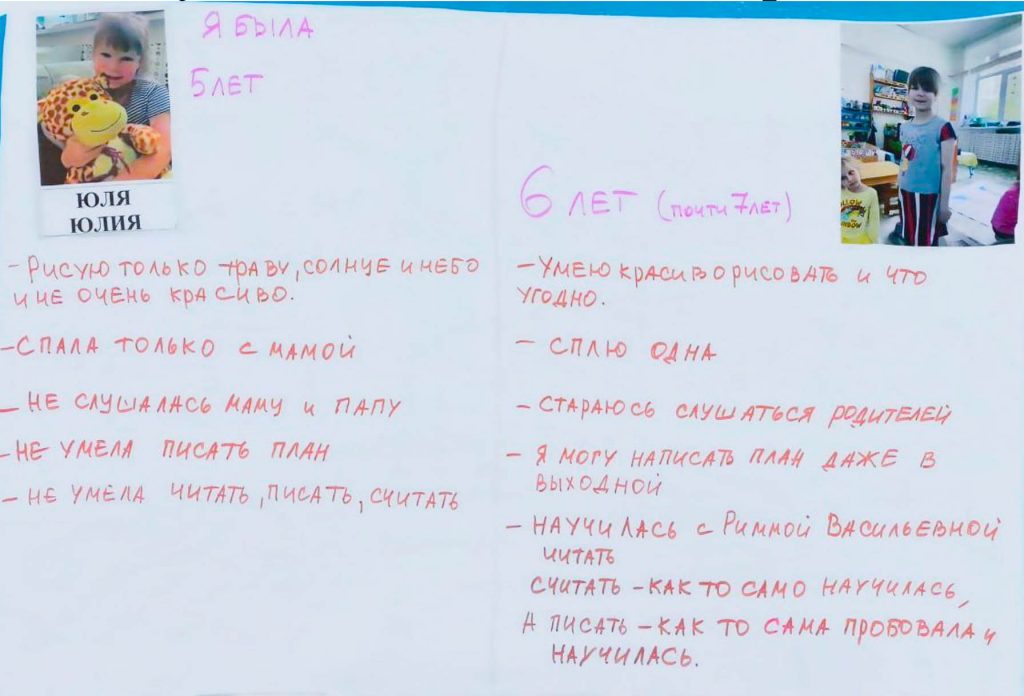 Я БЫЛА
5 ЛЕТ
ЮЛЯ
ЮЛИЯ
- РИСУЮ ТОЛЬКО ТРАВУ, СОЛНЦЕ И НЕБО
И НЕ ОЧЕНЬ КРАСИВО.
- СПАЛА ТОЛЬКО С МАМОЙ
- НЕ СЛУШАЛАСЬ МАМУ И ПАПУ
- НЕ УМЕЛА ПИСАТЬ ПЛАН
- НЕ УМЕЛА ЧИТАТЬ, ПИСАТЬ, СЧИТАТЬ
6 ЛЕТ (ПОЧТИ 7 ЛЕТ)
- УМЕЮ КРАСИВО РИСОВАТЬ И ЧТО
УГОДНО.
- СПЛЮ ОДНА
- СТАРАЮСЬ СЛУШАТЬСЯ РОДИТЕЛЕЙ
- Я МОГУ НАПИСАТЬ ПЛАН ДАЖЕ В
ВЫХОДНОЙ
- НАУЧИЛАСЬ С РИММОЙ ВАСИЛЬЕВНОЙ
ЧИТАТЬ
СЧИТАТЬ - КАК ТО САМО НАУЧИЛАСЬ,
А ПИСАТЬ - КАК ТО САМА ПРОБОВАЛА И
НАУЧИЛАСЬ.